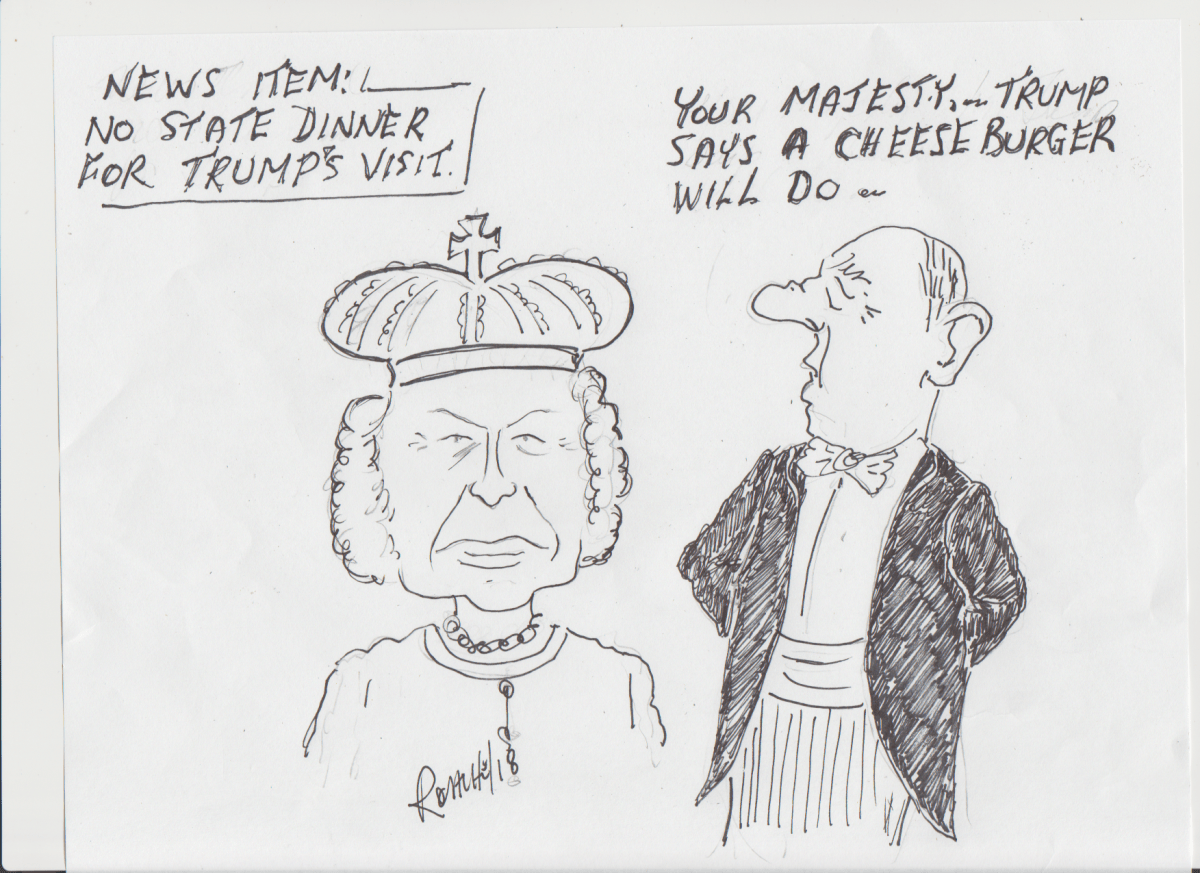 NEWS ITEM:
NO STATE DINNER
FOR TRUMP'S VISIT.
YOUR MAJESTY,... TRUMP
SAYS A CHEESEBURGER
WILL DO ...
18